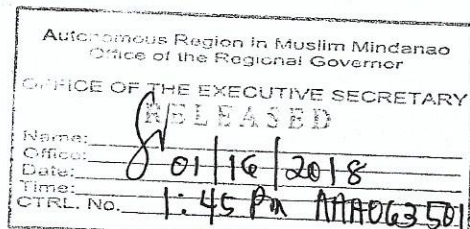 Autonomous Region in Muslim Mindanao
Office of the Regional Governor
OFFICE OF THE EXECUTIVE SECRETARY
RELEASED
Name:
Office:
Date: 01/16/2018
Time: 1:45 Pm
CTRL. No. AAA063501